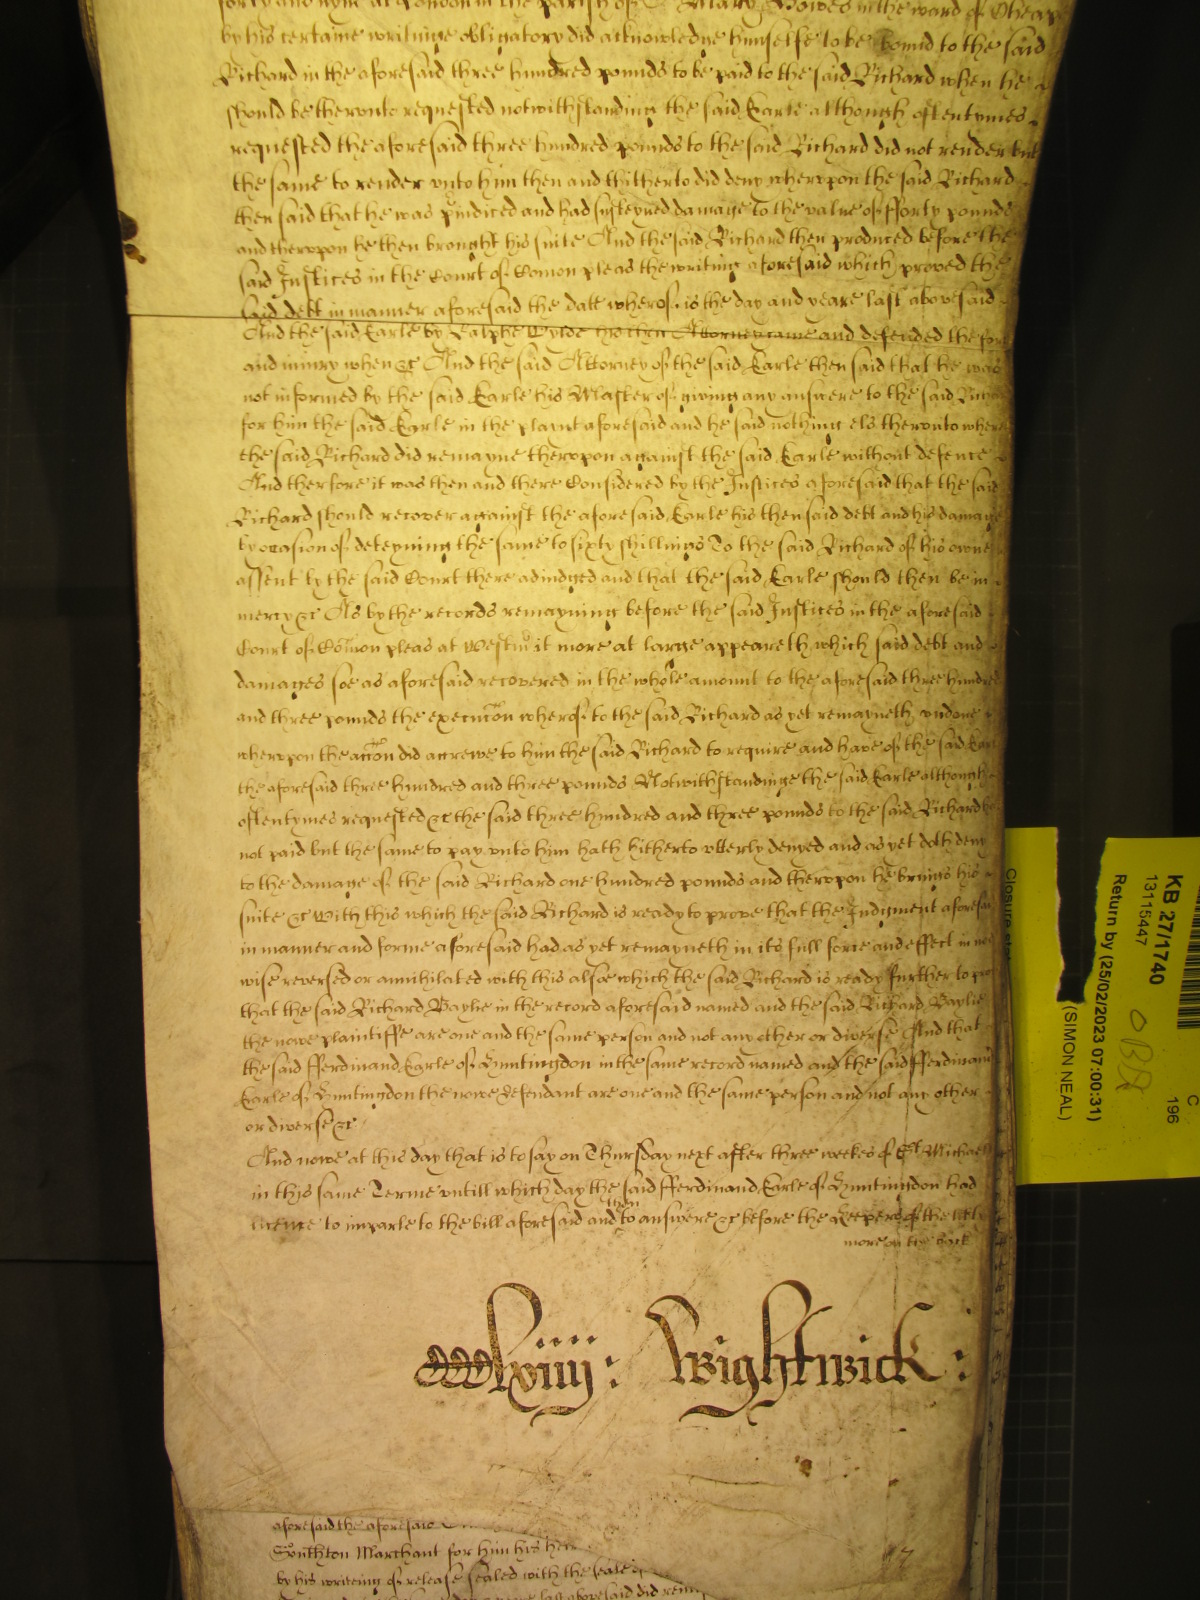 forty and nyne at London in the parish of St Mary Bowes in the ward of Cheap
by his certaine writinge obligatory did acknowledge himselfe to be bound to the said
Richard in the aforesaid three hundred pounds to be paid to the said Richard when he
should be therunto requested notwithstanding the said Earle although oftentymes
requested the aforesaid three hundred pounds to the said Richard did not render but
the same to render unto him then and thitherto did deny wherupon the said Richard
then said that he was piudiced and had susteyned damage to the value of fforty pounds
and therupon he then brought his suite And the said Richard then produced before the
said Justices in the Court of Comon pleas the writing aforesaid which proved the
said debt in manner aforesaid the date wherof is the day and yeare last abovesaid
And the said Earle by Ralphe Wylde his then Attorney came and defended the for
and iniury when &c And the said Attorney of the said Earle then said that he was
not informed by the said Earle his Master of giving any answere to the said Rich
for him the said Earle in the playnt aforesaid and he said nothing els therunto where
the said Richard did remayne therupon against the said Earle without defence
And therfore it was then and there Considered by the Justices aforesaid that the said
Richard should recover against the aforesaid Earle his then said debt and his damage
by occasion of deteyning the same to sixty shillings To the said Richard of his owne
assent by the said Court there adiudged and that the said Earle should then be in
mercy &c As by the records remayning before the said Justices in the aforesaid
Court of Comon pleas at Westm it more at large appeareth which said debt and
damages soe as aforesaid recovered in the whole amount to the aforesaid three hundred
and three pounds the execucon wherof to the said Richard as yet remayneth undone
wherupon the accon did accrewe to him the said Richard to require and have of the said Earl
the aforesaid three hundred and three pounds Notwithstandinge the said Earle although
oftentymes requested &c the said three hundred and three pounds to the said Richard ha
not paid but the same to pay unto him hath hitherto utterly denyed and as yet doth deny
to the damage of the said Richard one hundred pounds and therupon he brings his
suite &c With this which the said Richard is ready to prove that the Iudgment aforesai
in manner and forme aforesaid had as yet remayneth in its full force and effect in noe
wise reversed or annihilated with this alsoe which the said Richard is ready further to pro
that the said Richard Baylie in the record aforesaid named and the said Richard Baylie
the nowe plaintiffe are one and the same person and not any other or diverse And that
the said fferdinand Earle of Huntingdon in the same record named and the said fferdinand
Earle of Huntingdon the nowe defendant are one and the same person and not any other
or diverse &c
And nowe at this day that is to say on Thursday next after three weekes of St Michaell
in this same Terme untill which day the said fferdinand Earle of Huntingdon had
licence to imparle to the bill aforesaid and then to answere &c before the Keepers of the liber
more on the back
CCClxiiij: Wightwick:
aforesaid the aforesaid
Southton Marchant for him his hei
by his writeing of release sealed with the seale of
last abovesaid did remi
KB 27/1740
13115447
Return by (25/02/2023 07:00:31)
(SIMON NEAL)
C
196
Closure